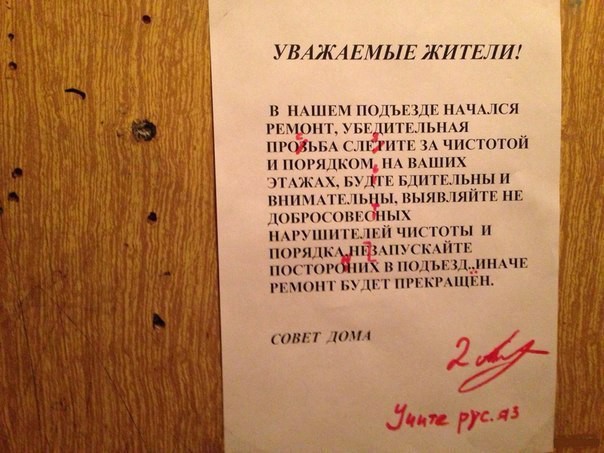 УВАЖАЕМЫЕ ЖИТЕЛИ!
В НАШЕМ ПОДЪЕЗДЕ НАЧАЛСЯ
РЕМОНТ, УБЕДИТЕЛЬНАЯ
ПРОЗЬБА СЛЕТИТЕ ЗА ЧИСТОТОЙ
И ПОРЯДКОМ, НА ВАШИХ
ЭТАЖАХ, БУДТЕ БДИТЕЛЬНЫ И
ВНИМАТЕЛЬНЫ, ВЫЯВЛЯЙТЕ НЕ
ДОБРОСОВЕСНЫХ
НАРУШИТЕЛЕЙ ЧИСТОТЫ И
ПОРЯДКА,НЕЗАПУСКАЙТЕ
ПОСТОРОНИХ В ПОДЪЕЗД..ИНАЧЕ
РЕМОНТ БУДЕТ ПРЕКРАЩЁН.
СОВЕТ ДОМА
2
Учите рус. яз